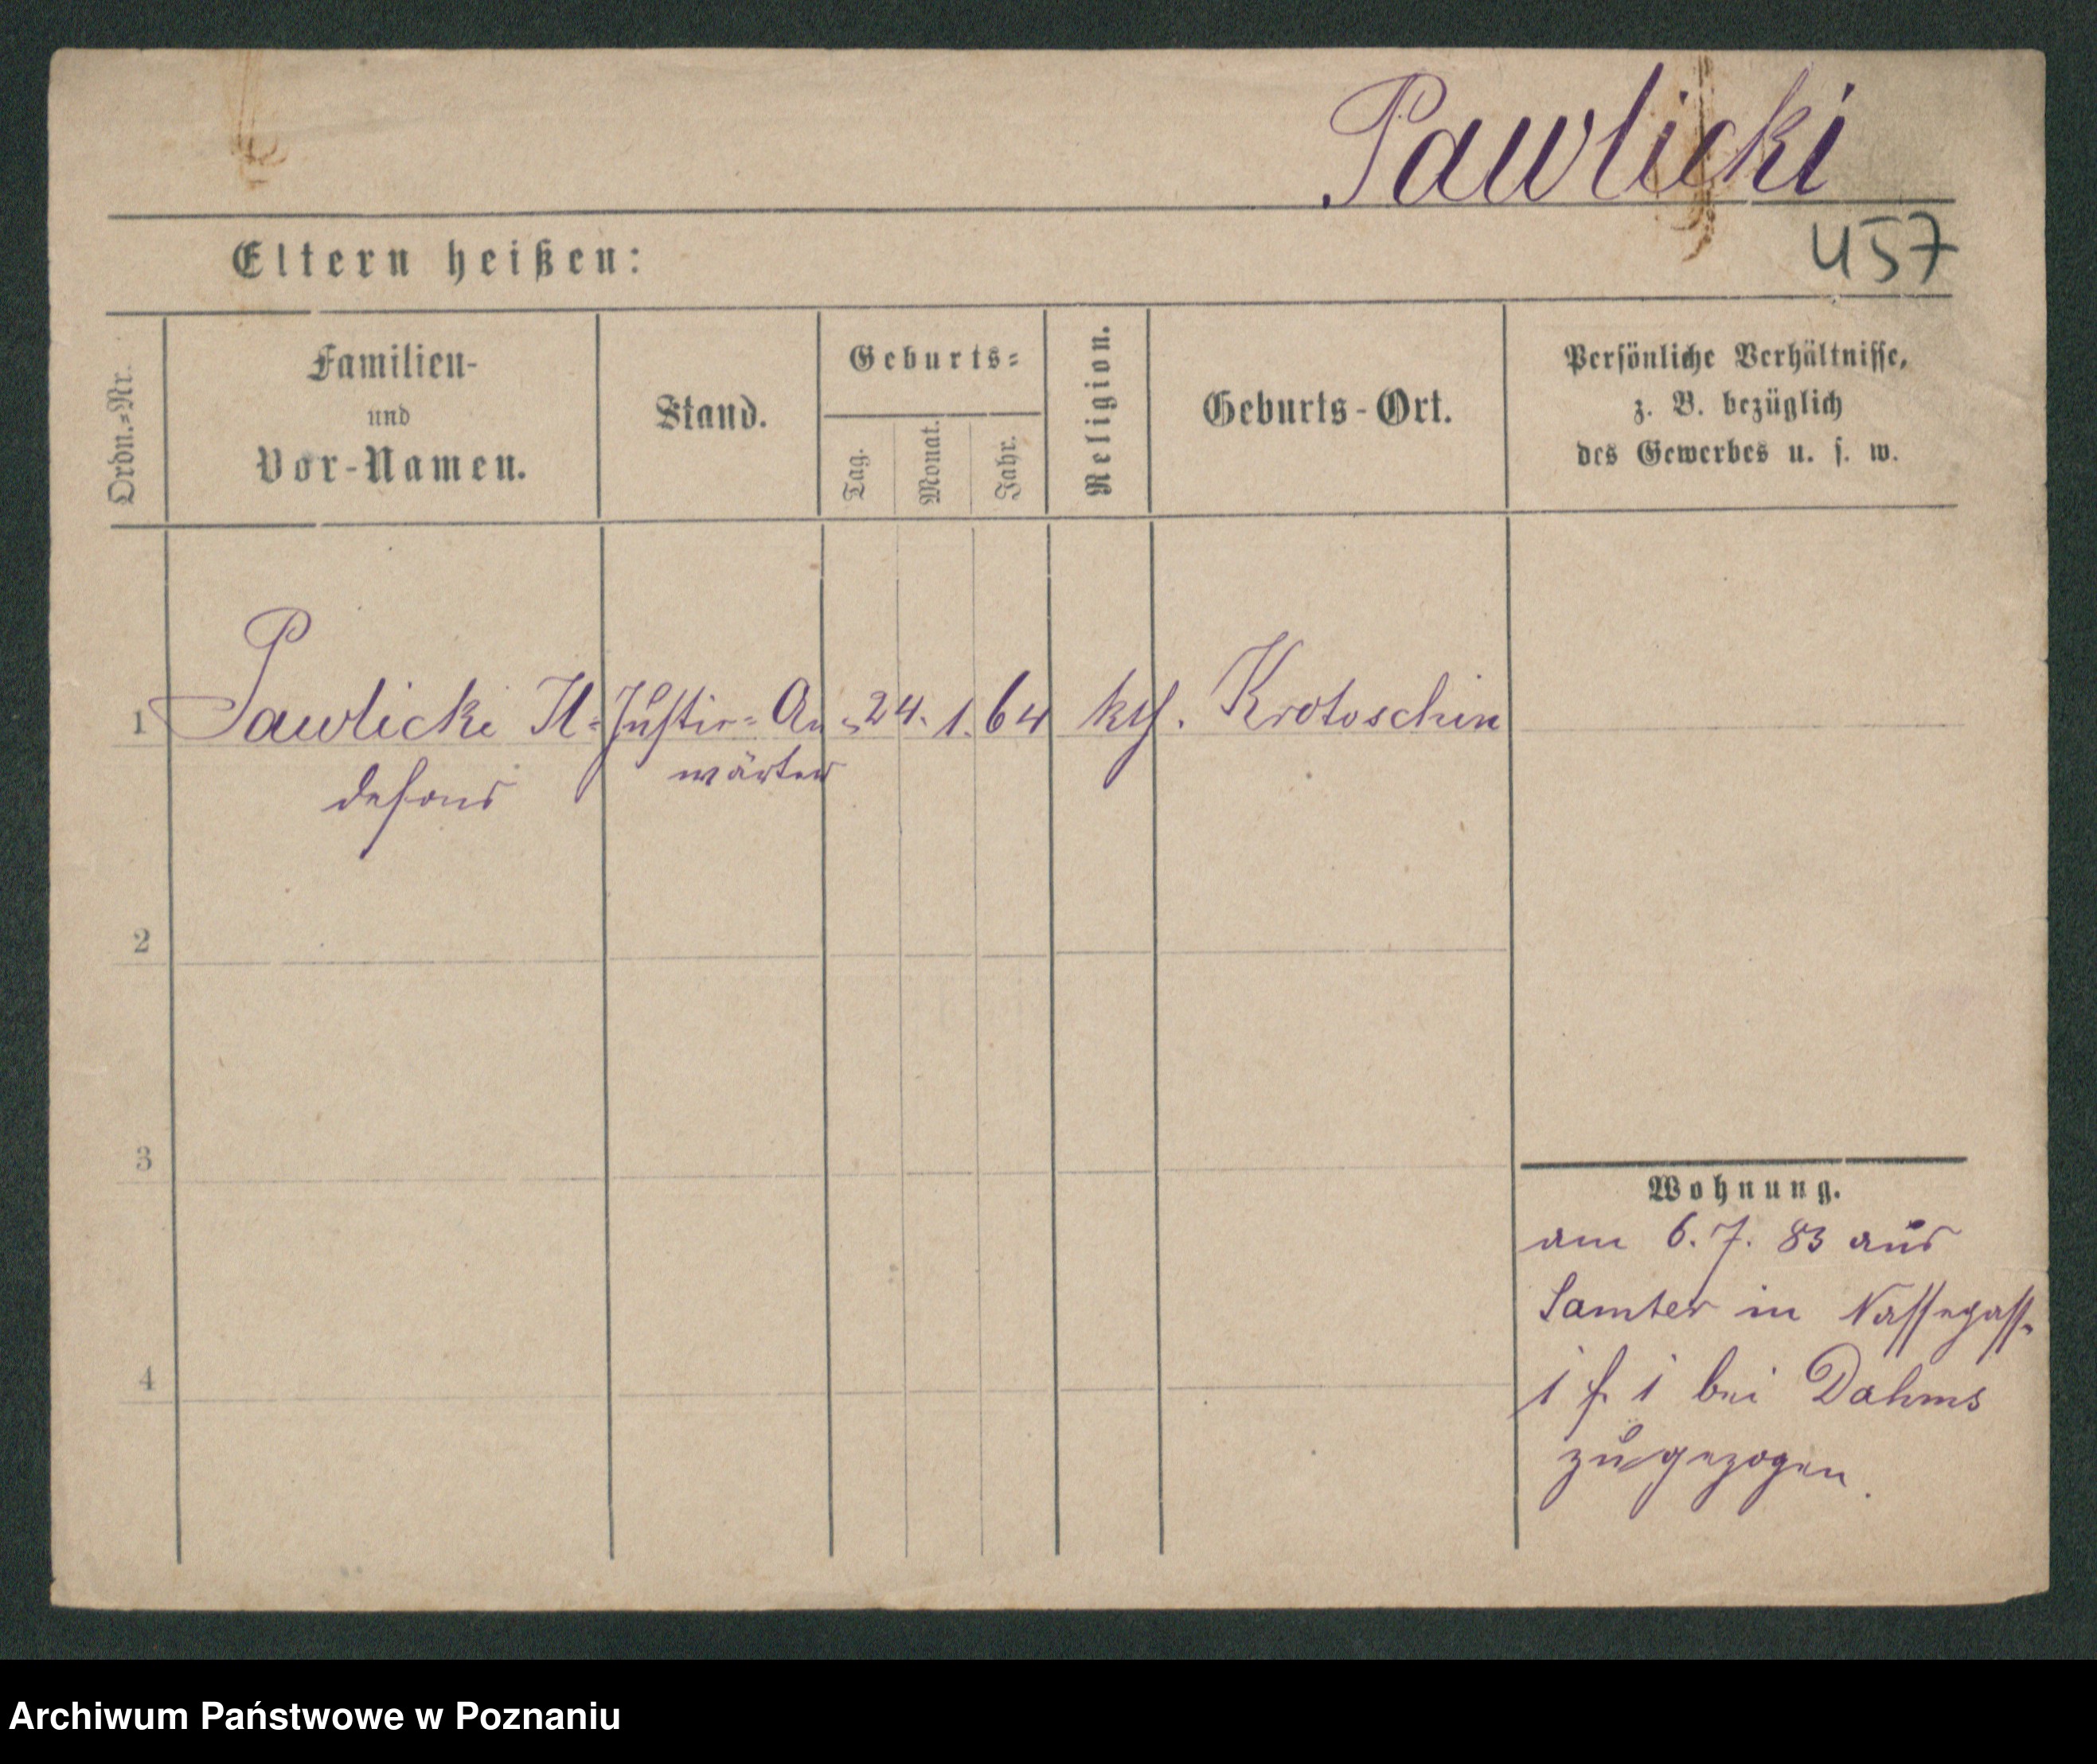 Pawlicki
457
Eltern heißen:
Ordn.=Nr.
Familien-
und
Vor-Namen.
Stand.
Geburts=
Tag.
Monat.
Jahr.
Religion.
Geburts-Ort.
Persönliche Verhältnisse,
z. B. bezüglich
des Gewerbes u. s. w.
1 Pawlicki Il= Justiz=An= 24. 1. 64 kth. Krotoschin
defons wärter
2
3
4
Wohnung.
am 6. 7. 83 aus
Samter in Nassegasse
1 1 bei Dahms
zugezogen.
Archiwum Państwowe w Poznaniu